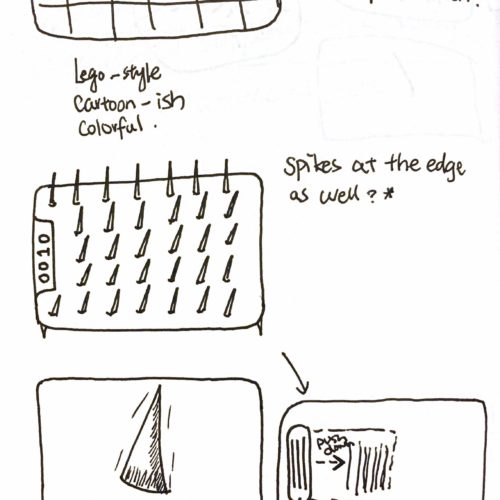 Lego-style
cartoon-ish
colorful.
Spikes at the edge
as well? *
0010
push
down